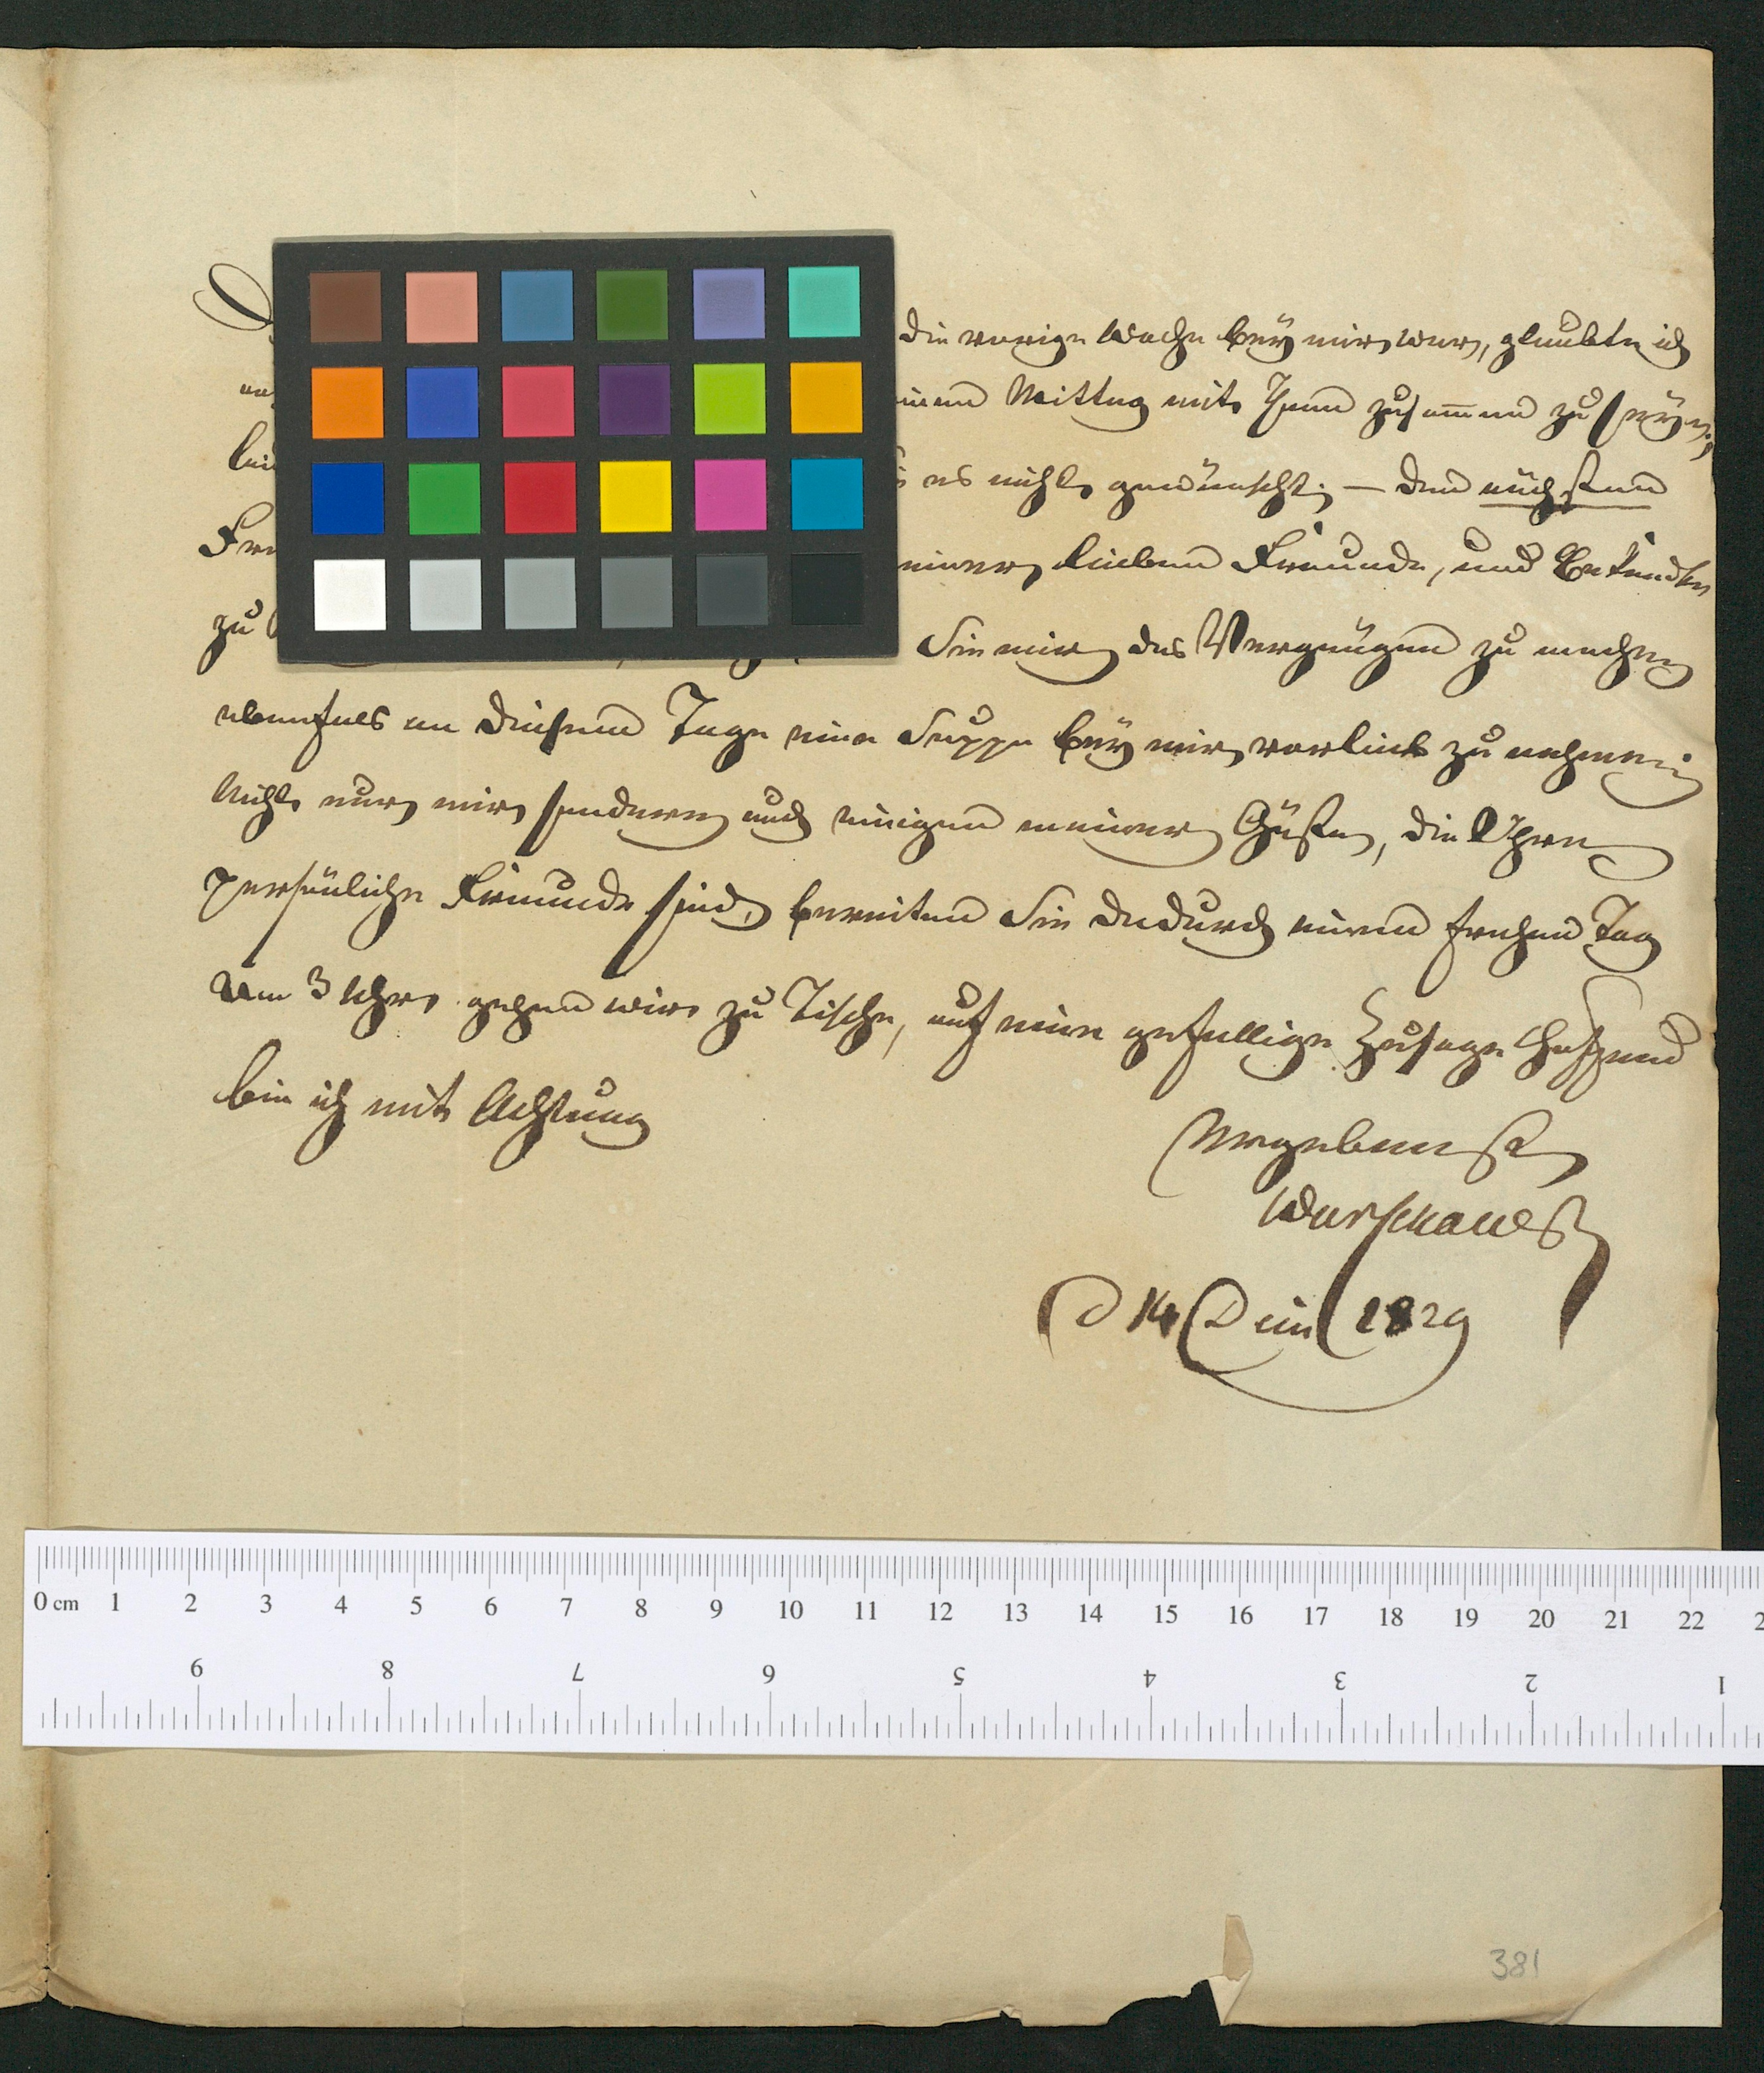 die vorige Woche bey mir war, glaubte ich
einen Mittag mit Ihnen zusammen zu seÿn;
es nicht gewünscht; — den nächsten
meiner lieben Freunde, und Bekandten
zu Sie mir das Vergnügen zu machen
ebenfals an diesem Tage eine Suppe beÿ mir vorlieb zu nehmen;
Nicht nur mir sondern auch einigen meiner Gäste, die Ihre
persönliche Freunde sind, bereiten Sie dadurch einen frohen Tag
Um 3 Uhr gehen wir zu Tische, auf eine gefallige Zusage hoffend
bin ich mit Achtung
Ergebenst
Warschauer
d 14 1829
0 cm 1 2 3 4 5 6 7 8 9 10 11 12 13 14 15 16 17 18 19 20 21 22
9 8 7 6 5 4 3 2 1
381